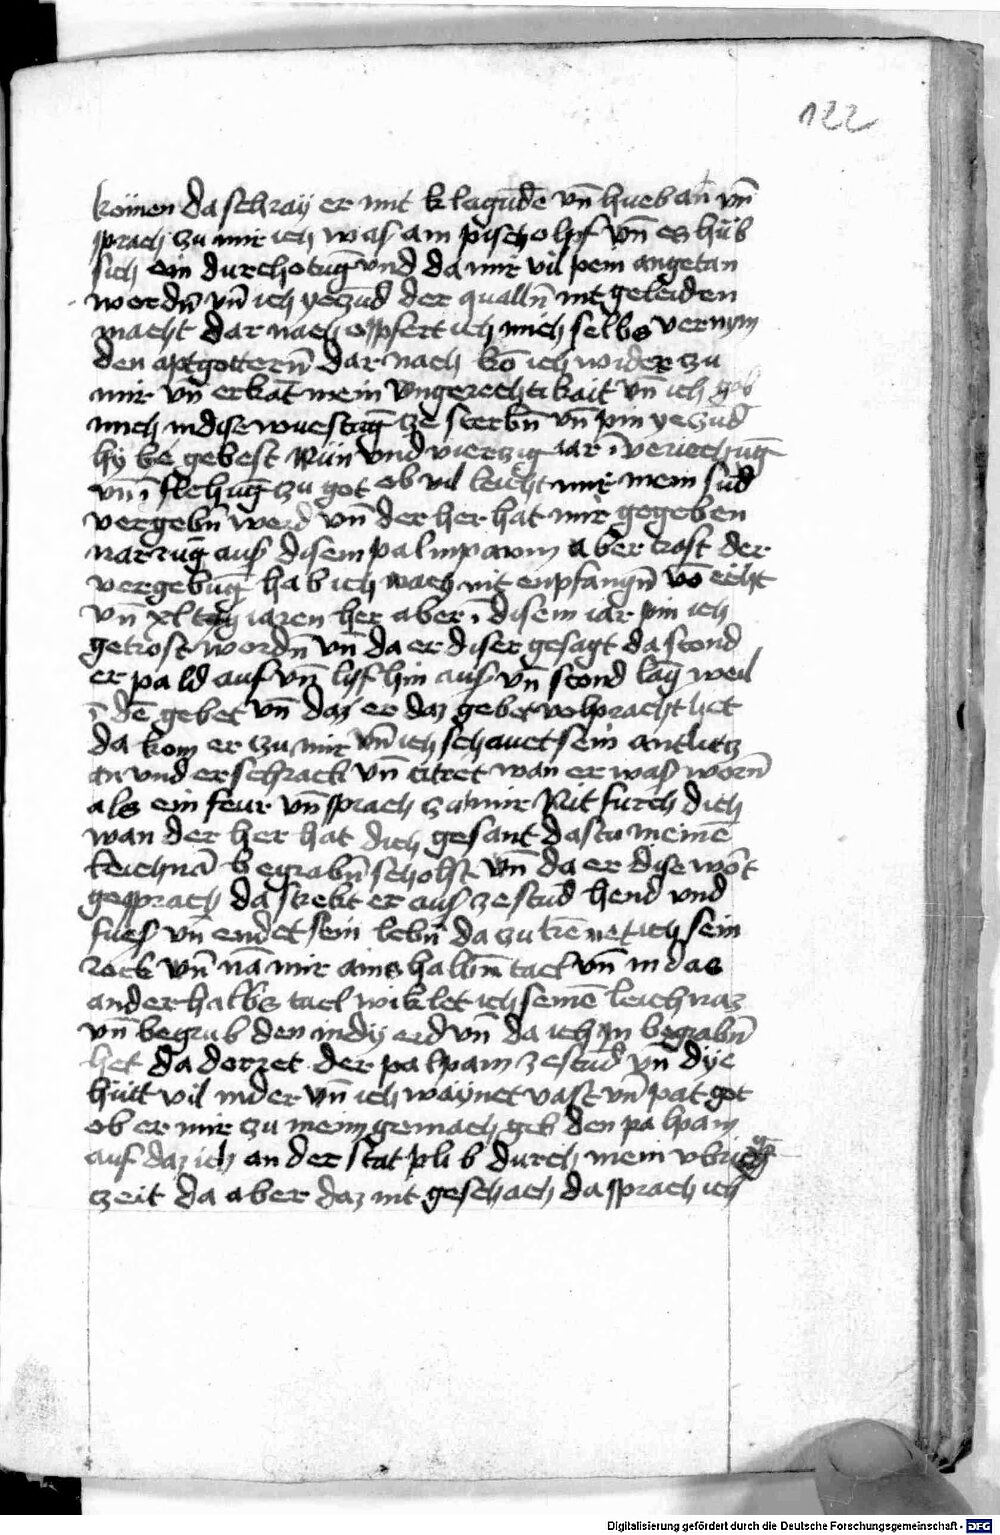 122
kömen da schray er mit klagūde vn̄ hueb an vn̄
sprach zu mir ich was ain pischolff vn̄ es hüb
sich ein durchötūg vnd da mir vil pein angetan
wordn̄ vn̄ ich yeczūd der qualln̄ nit geleiden
macht dar nach oppfert ich mich selbs vernym
den aptgottern̄ dar nach kō ich wider zu
mir vn̄ erkāt mein vngerechtikait vn̄ ich gab
mich in dise wuestūg ze sterbn̄ vn̄ pin yeczūd
hy be gebest Nün vnd vierczig iar ī veriechūg
vn̄ ī flehūg zu got ob vil leicht mir mein sūd
vergebn̄ werd vn̄ der her hat mir gegeben
narrūg aus disem palmpawm aber trost der
vergebūg hab ich nach nit enpfangn̄ vō echt
vn̄ xl iaren her aber ī disem iar pin ich
getrost wordn̄ vn̄ da er diser gesagt da stond
er pald auf vn̄ lyf hin aus vn̄ stond lāg weil
ī dē gebet vn̄ daz er daz gebet volpracht het
da kom er zu mir vn̄ ich schauet sein antlitz
an vnd erschrack vn̄ citret wan er was worn̄
als ein feur vn̄ sprach zu mir Nit furch dich
wan der her hat dich gesant dastu meinē
leichnā begrabn̄ scholst vn̄ da er dise wōt
gesprach da strekt er aus zestūd hend vnd
fues vn̄ endet sein lebn̄ da zu trēnet ich sein
rock vn̄ nā mir ains halbm̄ tael vn̄ in das
ander halbs tael wiklet ich seinē leichnaz
vn̄ begrub den in dy erd vn̄ da ich in begrabn̄
het da dorret der palpam zestūd vn̄ dye
hütt vil nider vn̄ ich waynet vast vn̄ pat got
ob er mir zu meim gemach geb den palpam
auf daz ich an der stat plib durch mein vbrige
zeit da aber daz nit geschach da sprach ich
Digitalisierung gefördert durch die Deutsche Forschungsgemeinschaft - DFG